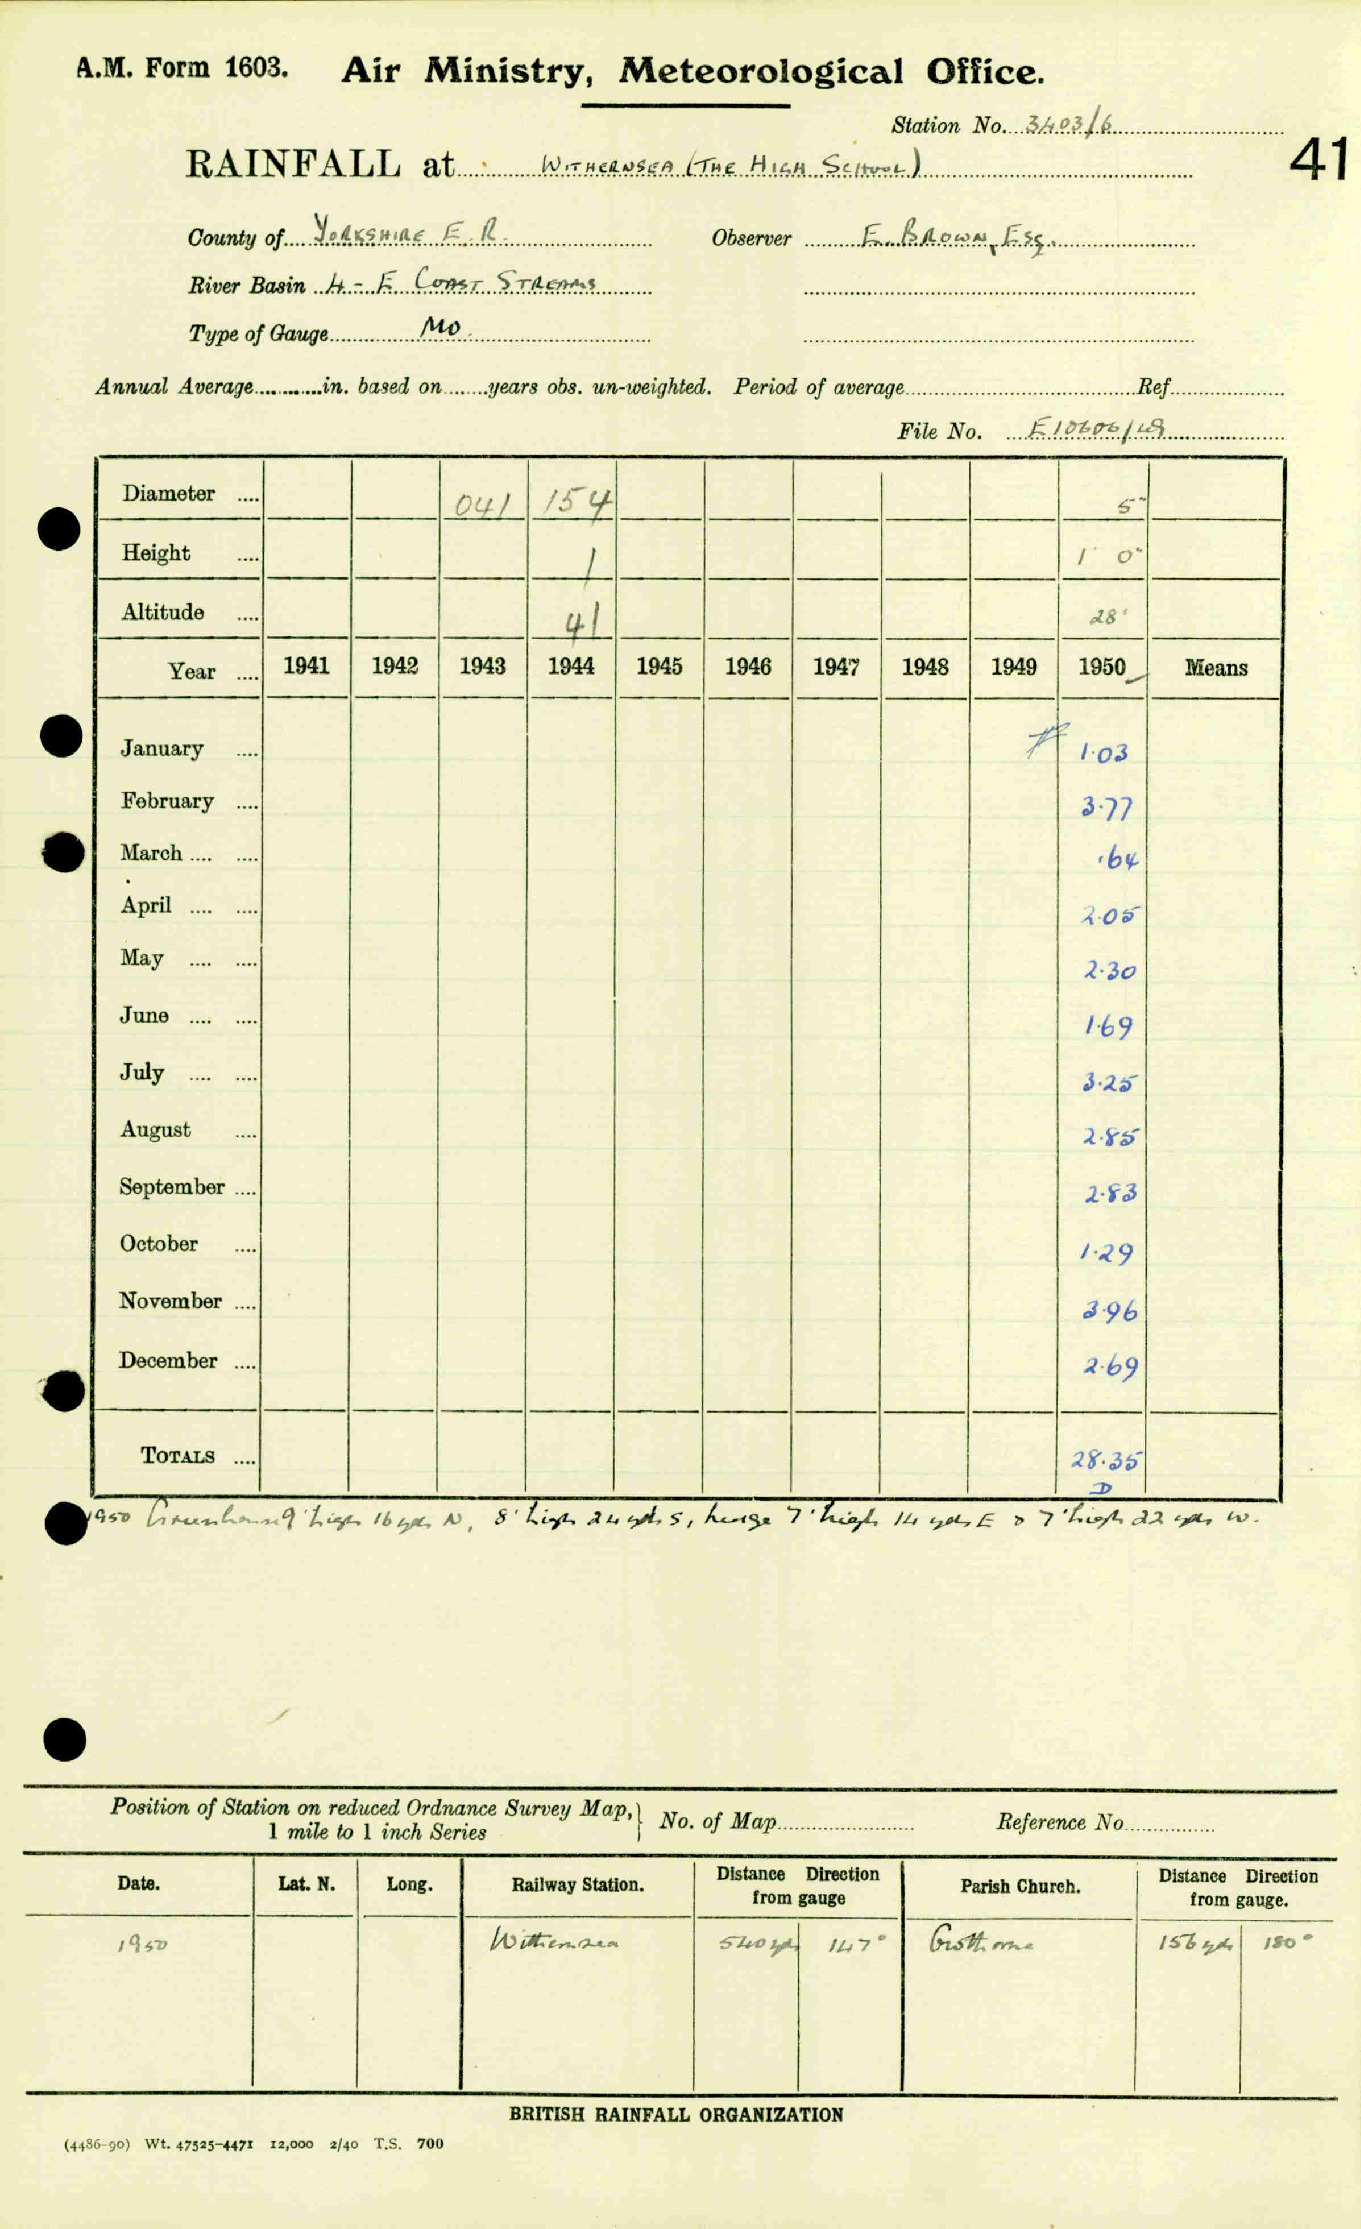 A.M. Form 1603. Air Ministry, Meteorological Office.
Station No. 3403/6
41
RAINFALL at WITHERNSEA (THE HIGH SCHOOL)
County of YORKSHIRE E.R. Observer E. BROWN, ESQ.
River Basin 4 - E COAST STREAMS
Type of Gauge MO.
Annual Average in. based on years obs. un-weighted. Period of average Ref.
File No. E10606/49
Diameter .... 041 154 5"
Height .... 1 1' 0"
Altitude .... 41 28'
Year .... 1941 1942 1943 1944 1945 1946 1947 1948 1949 1950 Means
January .... 1.03
February .... 3.77
March .... .... .64
April .... .... 2.05
May .... .... 2.30
June .... .... 1.69
July .... .... 3.25
August .... 2.85
September .... 2.83
October .... 1.29
November .... 3.96
December .... 2.69
TOTALS .... 28.35
D
1950 Greenhouse 9' high 16 yds N, 8' high 24 yds S, hedge 7' high 14 yds E & 7' high 22 yds W.
Position of Station on reduced Ordnance Survey Map, } No. of Map Reference No.
1 mile to 1 inch Series
Date. Lat. N. Long. Railway Station. Distance Direction from gauge Parish Church. Distance Direction from gauge.
1950 Withernsea 540 yds 147° 156 yds 180°
BRITISH RAINFALL ORGANIZATION
(4486-90) Wt. 47525-4471 12,000 2/40 T.S. 700